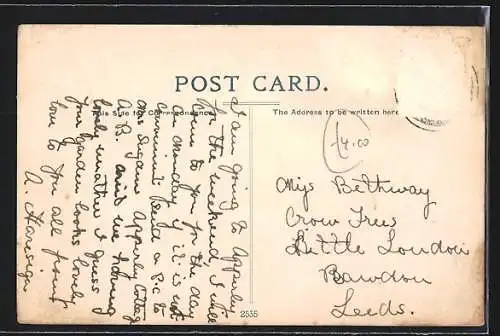 POST CARD.
This Side for Correspondence.
The Address to be written here
I am going to Apperley
for the weekend, I will
come to you for the day
on Monday if it is not
convenient send a P.C. to
Mrs Apperley Cottage
A.B. arnt we having
lovely weather I guess
your garden looks lovely
love to you all from
A.
£4.00
Miss Bethway
Crow Trees
Little London
Rawdon
Leeds.
2535